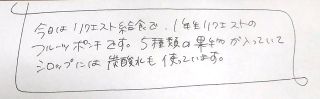 今日はリクエスト給食で、1年生リクエストの
フルーツポンチです。5種類の果物が入っていて
シロップには炭酸水も使っています。